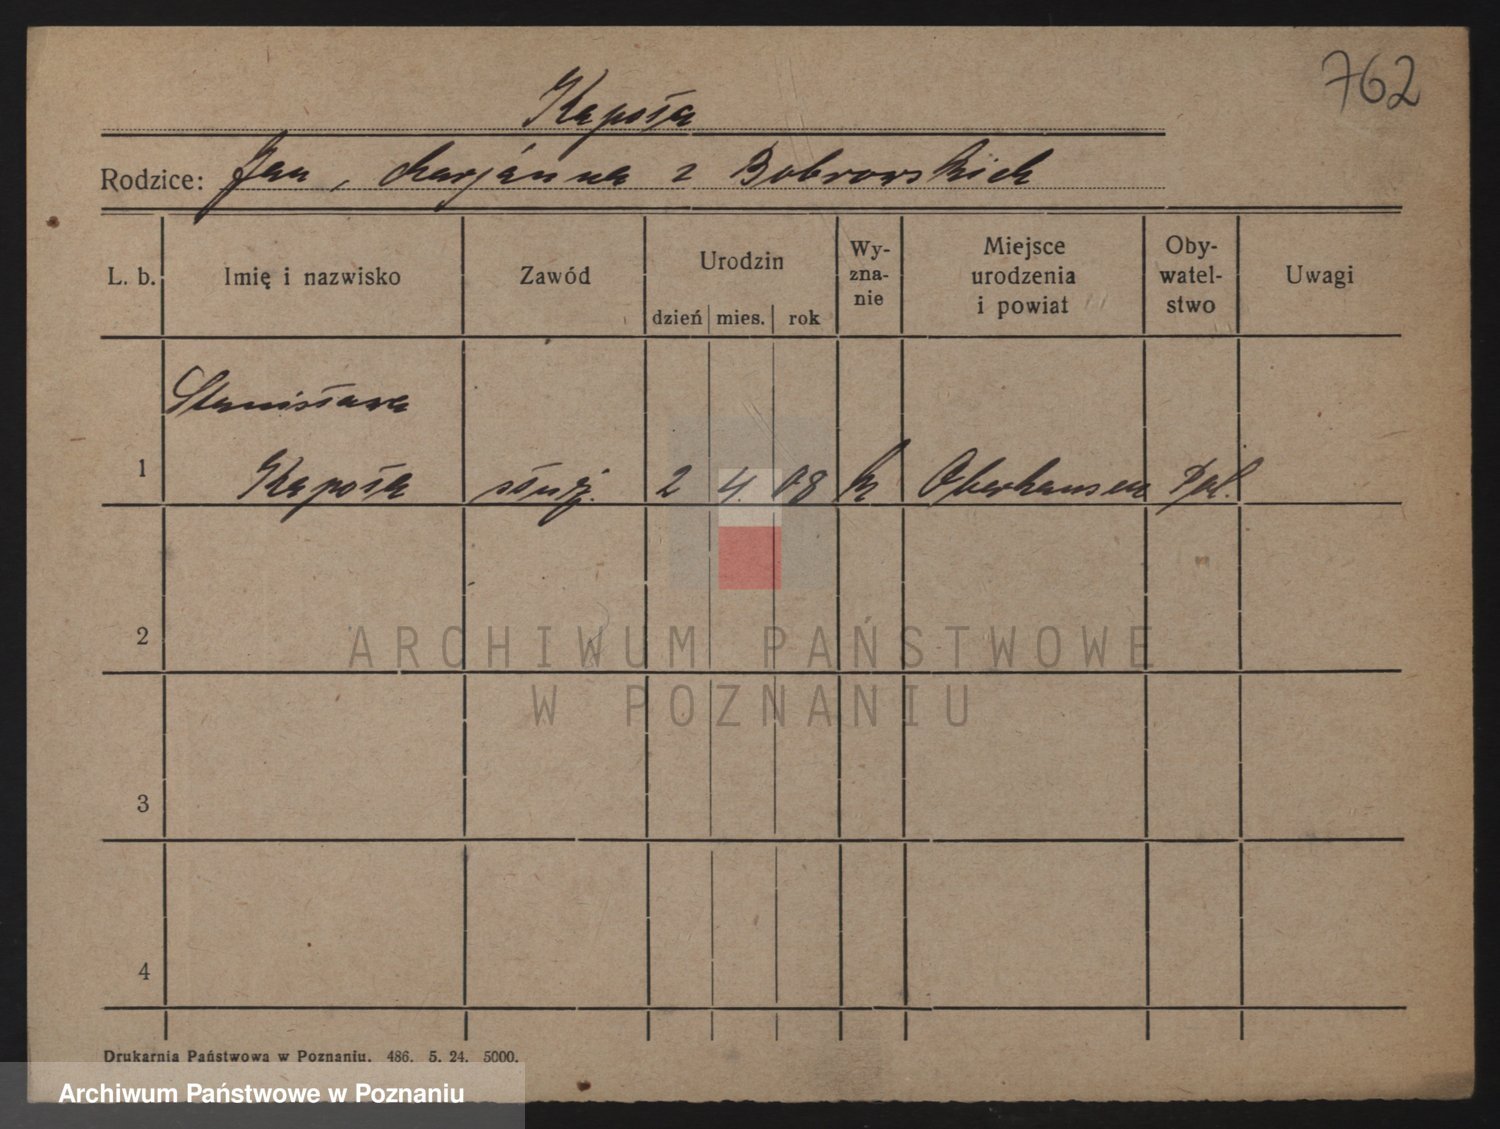 762
Kapośa
Rodzice: Jan, Marjanna z Bobrowskich
L. b. Imię i nazwisko Zawód Urodzin dzień mies. rok Wy-zna-nie Miejsce urodzenia i powiat Oby-watel-stwo Uwagi
Stanisława
1 Kapośa służ. 2 4. 08 k Oberhausen Pol.
2
ARCHIWUM PAŃSTWOWE
W POZNANIU
3
4
Drukarnia Państwowa w Poznaniu. 486. 5. 24. 5000.
Archiwum Państwowe w Poznaniu